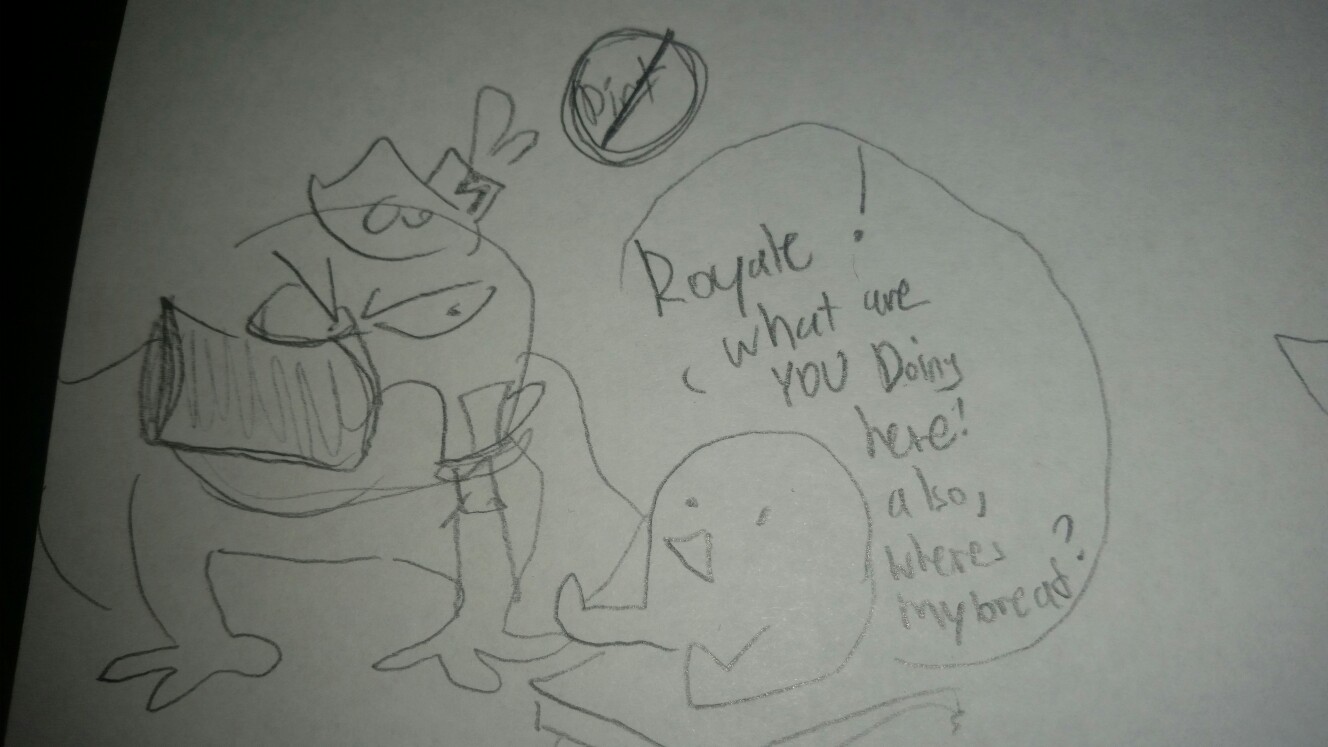 Royale!
what are
YOU Doing
here!
also,
wheres
my bread?